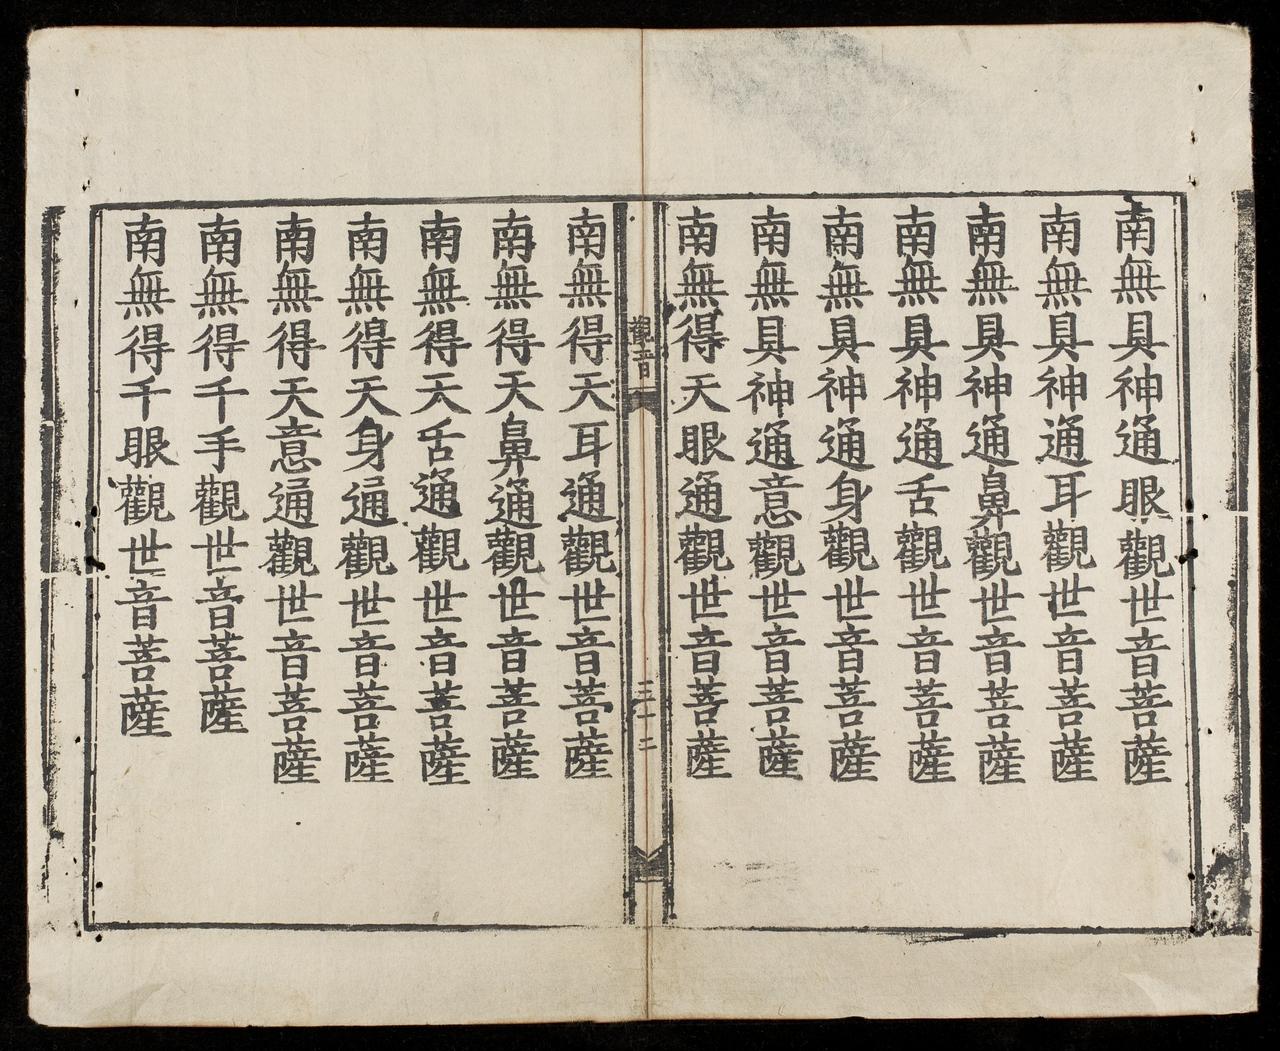 南無具神通眼觀世音菩薩
南無具神通耳觀世音菩薩
南無具神通鼻觀世音菩薩
南無具神通舌觀世音菩薩
南無具神通身觀世音菩薩
南無具神通意觀世音菩薩
南無得天眼通觀世音菩薩
觀音
三十二
南無得天耳通觀世音菩薩
南無得天鼻通觀世音菩薩
南無得天舌通觀世音菩薩
南無得天身通觀世音菩薩
南無得天意通觀世音菩薩
南無得千手觀世音菩薩
南無得千眼觀世音菩薩